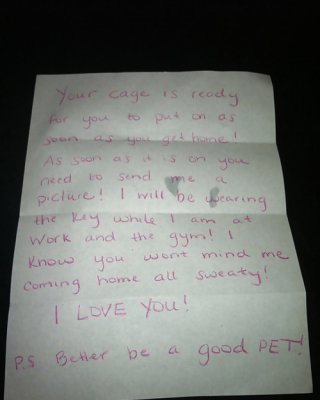 Your cage is ready
for you to put on as
soon as you get home!
As soon as it is on you
need to send me a
picture! I will be wearing
the key while I am at
work and the gym! I
know you wont mind me
coming home all sweaty!
I LOVE YOU!
P.S Better be a good PET!